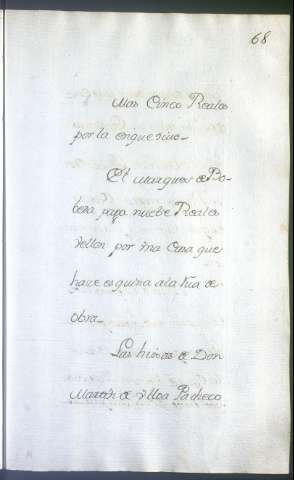 68
Mas Cinco Reales
por la ongue sine_
El Marques de Bo-
beda paga nuebe Reales
vellon por vna Casa que
haze esquina a la Rua de
obra_
Las hixas de Don
Martin de Vlloa Pacheco